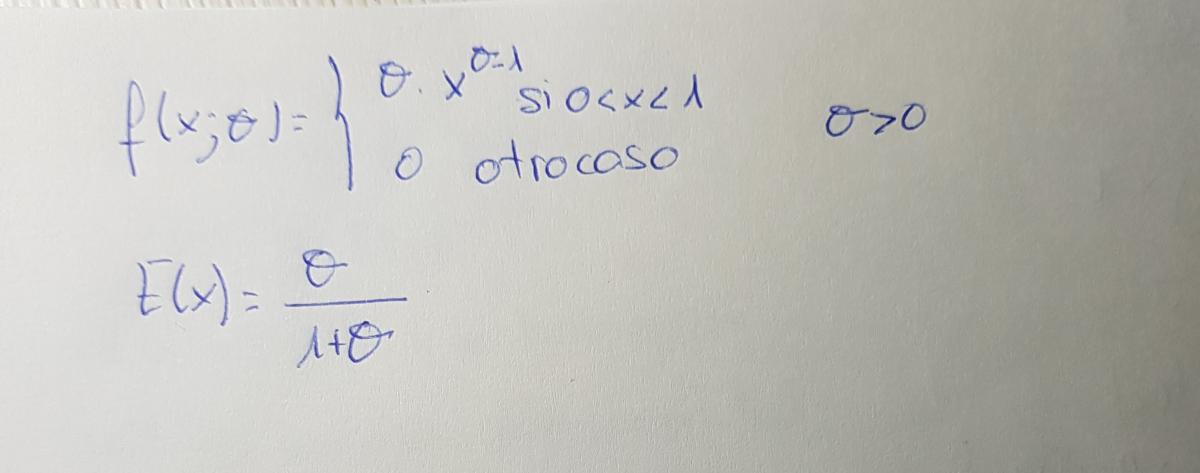 f(x;θ)= { θ. x^θ-1 si 0<x<1 θ>0
0 otro caso
E(x)= θ
1+θ